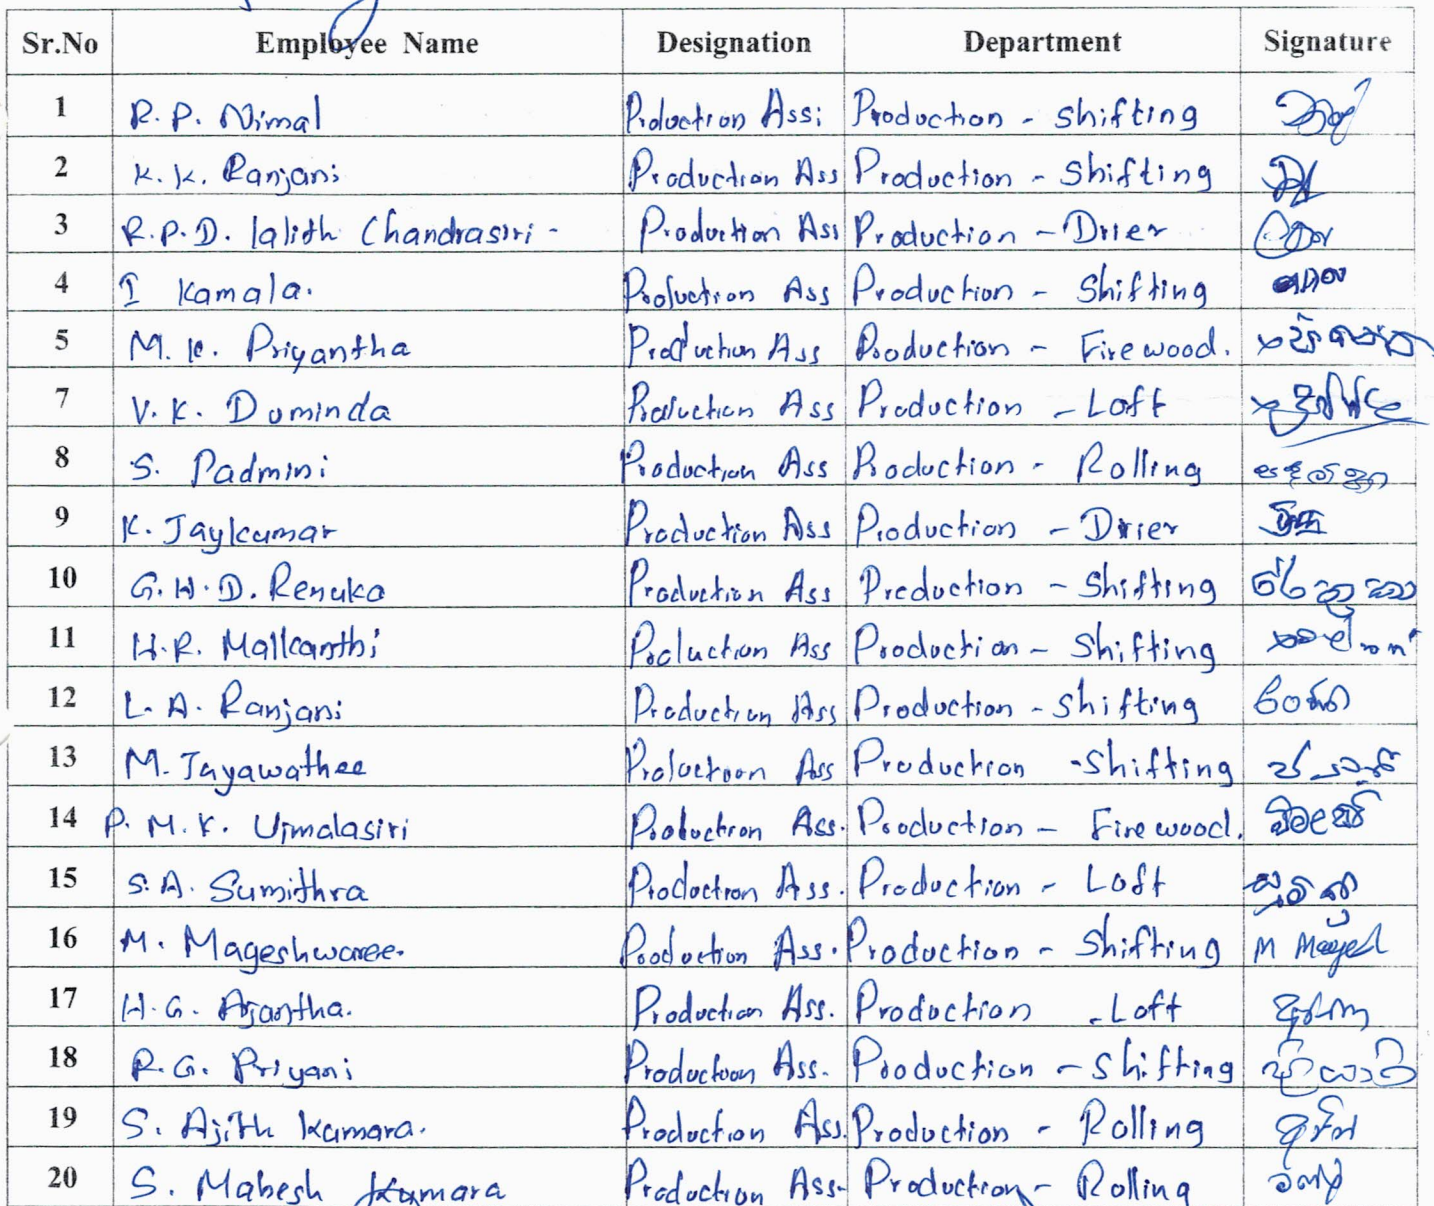 Sr.No Employee Name Designation Department Signature
1 R.P. Nimal Production Assi Production - Shifting
2 K.K. Ranjani Production Ass Production - Shifting
3 R.P.D. lalith Chandrasiri - Production Ass Production - Drier
4 I Kamala. Production Ass Production - Shifting
5 M.K. Priyantha Production Ass Production - Fire wood.
7 V.K. Duminda Production Ass Production - Loft
8 S. Padmini Production Ass Production - Rolling
9 K. Jaykumar Production Ass Production - Drier
10 G.H.D. Renuka Production Ass Production - Shifting රේණුකා
11 H.R. Mallkanthi Production Ass Production - Shifting
12 L.A. Ranjani Production Ass Production - Shifting
13 M. Jayawathee Production Ass Production - Shifting
14 P.M.K. Wimalasiri Production Ass. Production - Fire wood.
15 S.A. Sumithra Production Ass. Production - Loft
16 M. Mageshwaree. Production Ass. Production - Shifting M Magesh
17 H.G. Ajantha. Production Ass. Production - Loft
18 R.G. Priyani Production Ass. Production - Shifting
19 S. Ajith kumara. Production Ass. Production - Rolling
20 S. Mahesh Kumara Production Ass. Production - Rolling